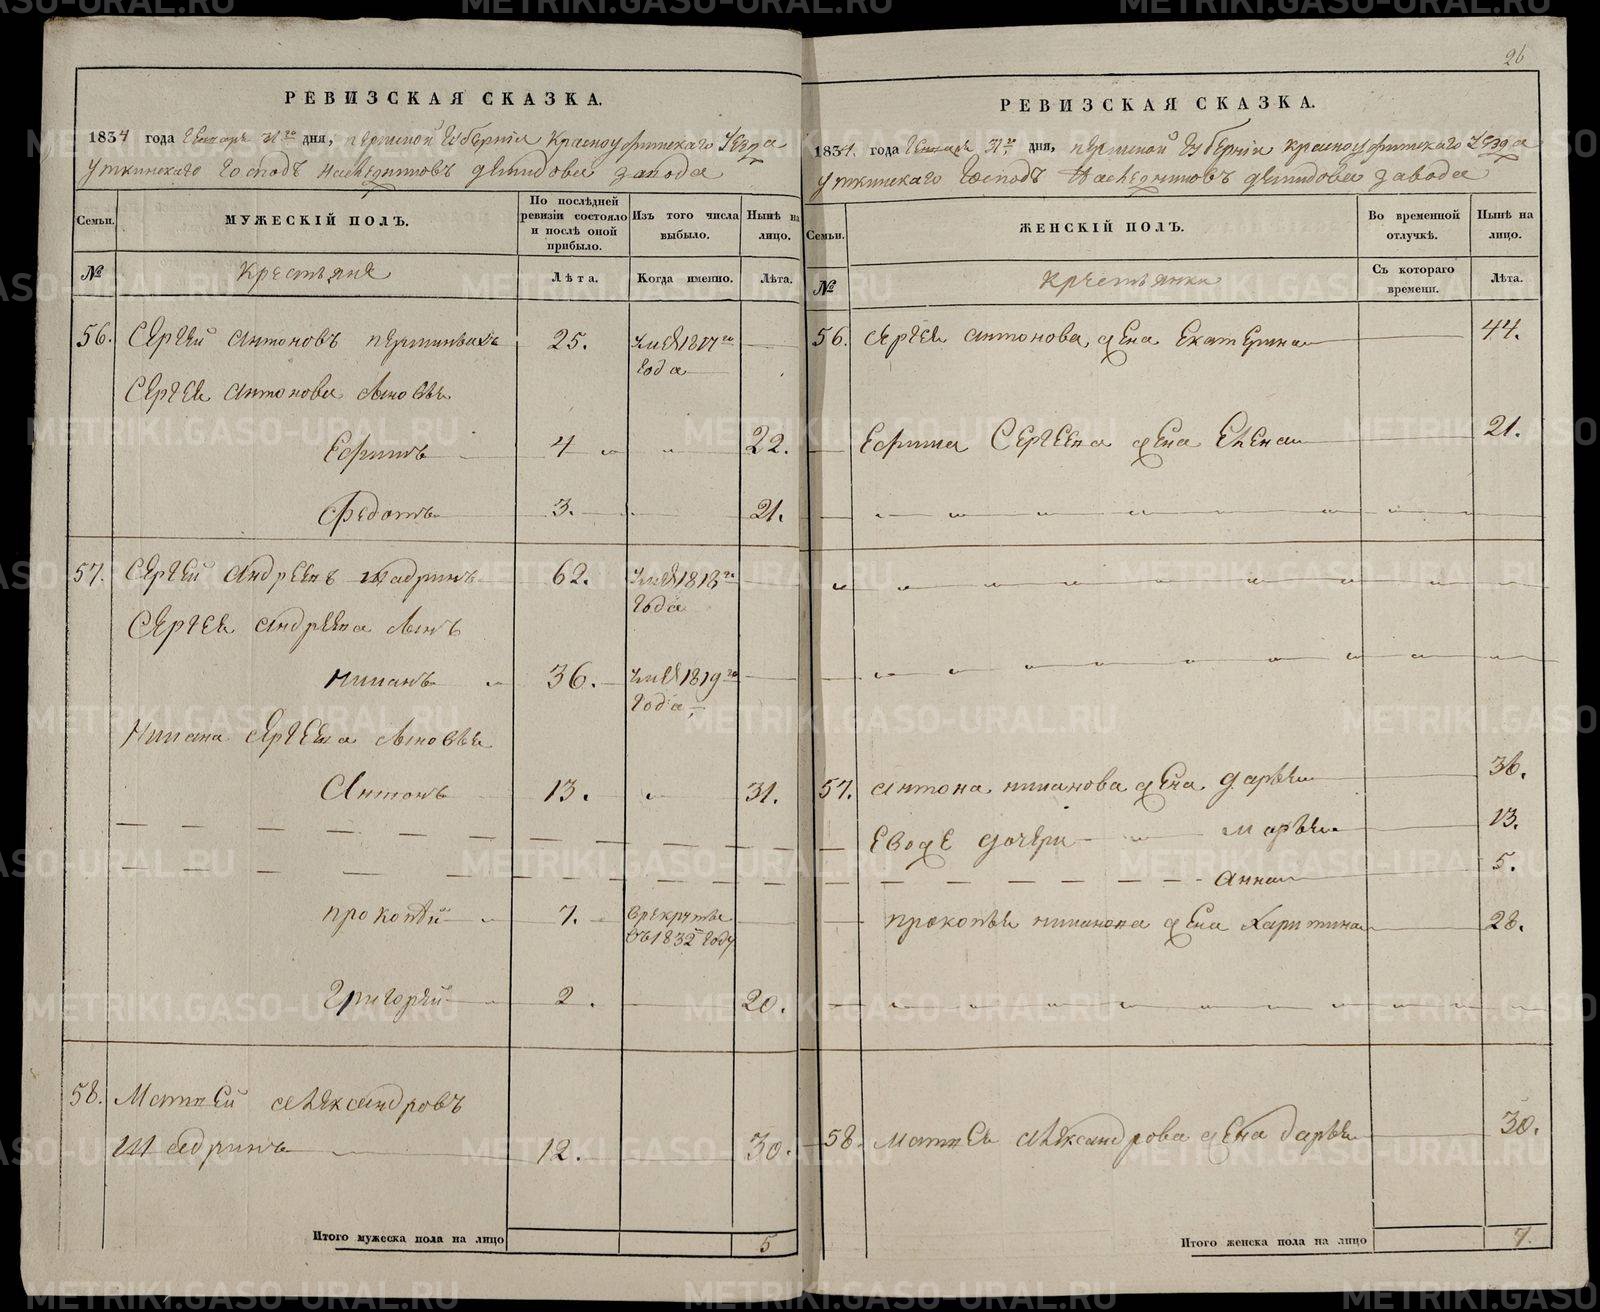 26
РЕВИЗСКАЯ СКАЗКА.
1834 года Генваря 31го дня, Пермской Губернии Красноуфимского Уезда
Уткинскаго Господъ Наследниковъ Демидова завода
Семьи.
МУЖЕСКІЙ ПОЛЪ.
По послѣдней ревизіи состояло и послѣ оной прибыло.
Изъ того числа выбыло.
Нынѣ на лицо.
№
Крестьяне
Лѣта.
Когда именно.
Лѣта.
56. Сергей Антоновъ 25. Умеръ 1817го
года
Сергея Антонова сыновья
Ефимъ 4 22.
Федотъ 3. 21.
57. Сергей Андреевъ Шадринъ 62. Умеръ 1818го
года
Сергея Андреева сынъ
36. Умеръ 1819го
года
Сергеева сыновья
Антонъ 13. 31.
Прокопей 7. В рекруты
въ 1832м году
Григорей 2. 20.
58. Матвей Александровъ
Шадринъ 12. 30.
Итого мужеска пола на лицо 5
РЕВИЗСКАЯ СКАЗКА.
1834. года Генваря 31го дня, Пермской Губернии Красноуфимского Уезда
Уткинскаго Господъ Наследниковъ Демидова завода
Семьи.
ЖЕНСКІЙ ПОЛЪ.
Во временной отлучкѣ.
Нынѣ на лицо.
№
Крестьянки
Съ котораго времени.
Лѣта.
56. Сергея Антонова жена Екатерина 44.
Ефима Сергеева жена Елена 21.
57. Антона жена Дарья 36.
Ево же дочери Марья 13.
Анна 5.
Прокопья жена Харитина 28.
58. Матвея Александрова жена Дарья 30.
Итого женска пола на лицо 7.
METRIKI.GASO-URAL.RU